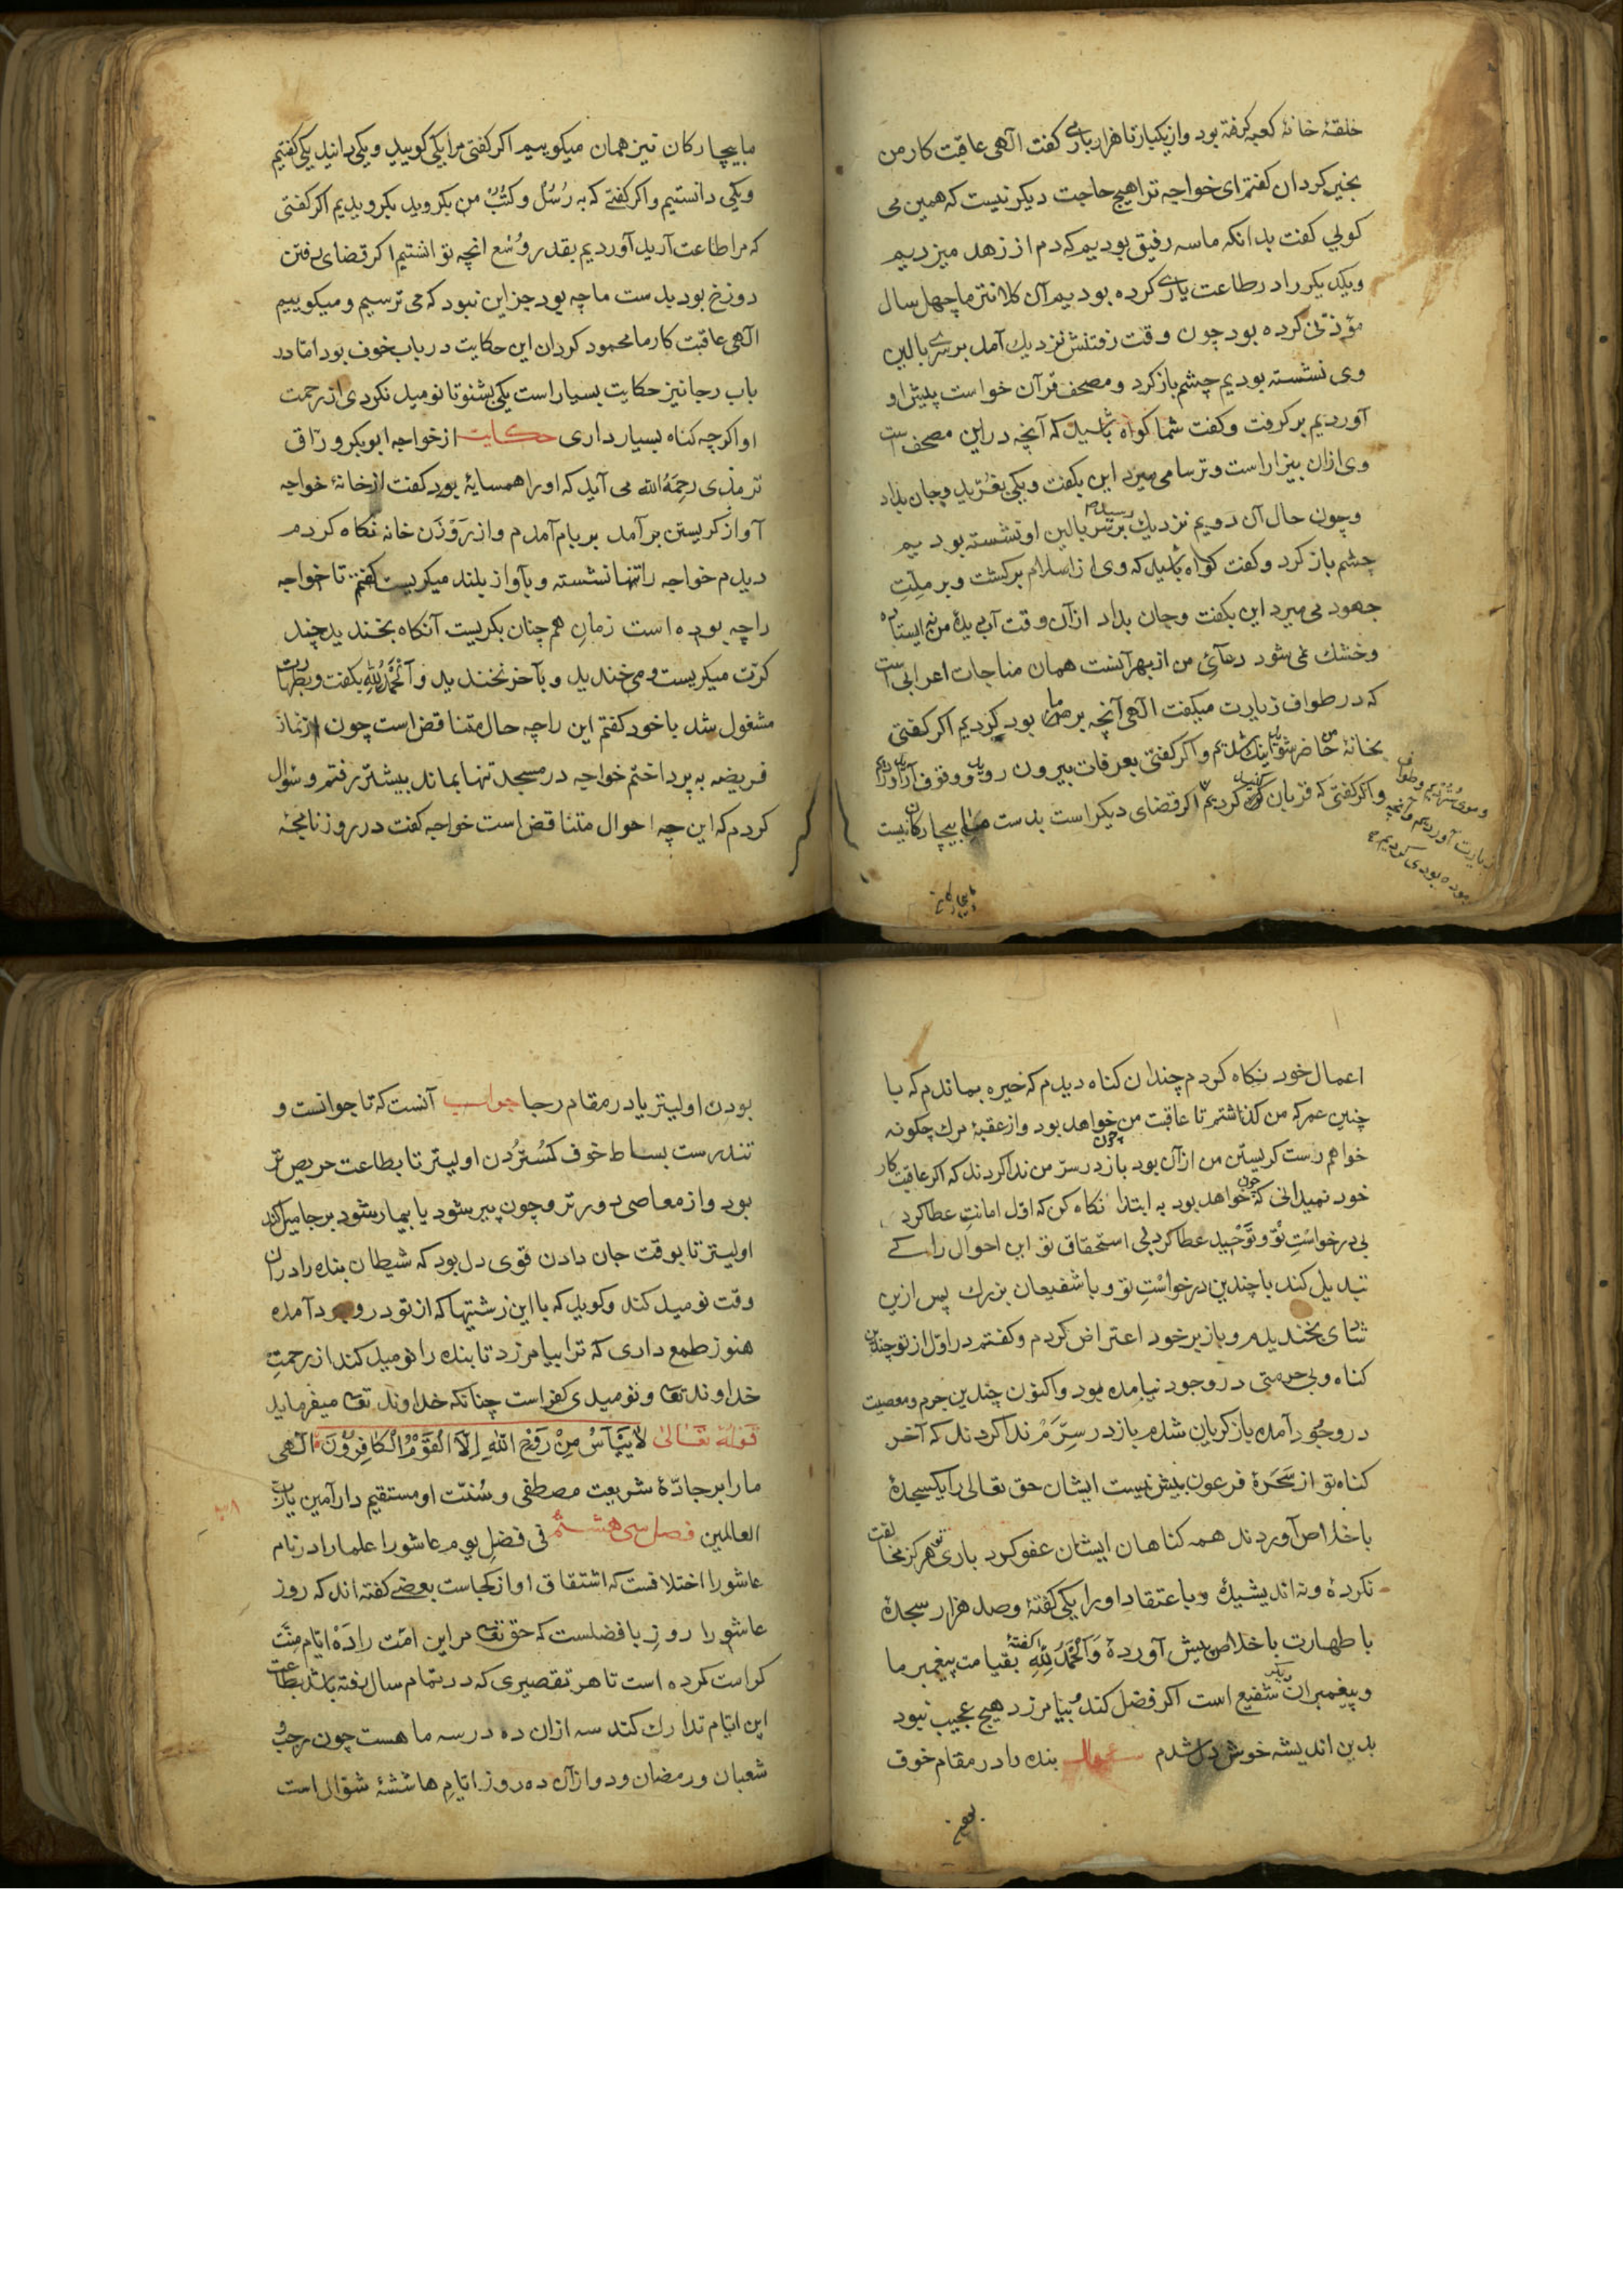 حلقهٔ خانهٔ کعبه گرفته بود و از یکبار تا هزار باری گفت الهی عاقبت کار من
بخیر گردان گفتم ای خواجه ترا هیچ حاجت دیکر نیست که همین می
کویی گفت بدانکه ما سه رفیق بودیم که دم از زهد میزدیم
و یکدیکر را در طاعت یاری کرده بودیم آن کلانتر ما چهل سال
مؤذنی کرده بود چون وقت رفتنش نزدیک آمد بر سری بالین
وی نشسته بودیم چشم باز کرد و مصحف قرآن خواست پیش او
آوردیم بر کرفت و کفت شما کواه باشید که آنچه در این مصحف است
وی ازان بیزار است و ترسا می میرد این بکفت و یکی بغرید و جان بداد
و چون حال آن دویم نزدیک رسید بر سر بالین او نشسته بودیم
چشم باز کرد و کفت کواه باشید که وی از اسلام برکشت و بر ملت
جهود می میرد این بکفت و جان بداد ازان وقت آب دیدهٔ من نه ایستاده
و خشک نمی شود دعائ من از بهر آنست همان مناجات اعرابی است
که در طواف زیارت میکفت الهی آنچه بر ما بود کردیم اکر کفتی
بخانهٔ من حاضر شوید اینک شدیم و اکر کفتی بعرفات بیرون روید و وقوف آرید آوردیم
و اکر کفتی که قربان کنید کردیم اکر قضای دیکر است بدست ما بیچارکان نیست
و موی ستردیم و طواف
زیارت آوردیم و آنچه
بوده بودی کردیم
ما بیچارکان نیز
ما بیچارکان نیز همان میکوییم اکر کفتی مرا یکی کویید و یکی دانید یکی کفتیم
و یکی دانستیم و اکر کفتی که به رُسُل و کتُب من بکروید بکرویدیم اکر کفتی
که مرا طاعت آرید آوردیم بقدر وُسْع انچه توانستیم اکر قضای رفتن
دوزخ بود بدست ما چه بود جز این نبود که می ترسیم و میکوییم
الهی عاقبت کار ما محمود کردان این حکایت در باب خوف بود اما در
باب رجا نیز حکایت بسیار است یکی بشنو تا نومید نکردی از رحمت
او اکرچه کناه بسیار داری حکایت از خواجه ابوبکر ورّاق
ترمذی رحِمَهُ الله می آید که او را همسایهٔ بود کفت از خانهٔ خواجه
آواز کریستن برآمد بر بام آمدم و از رَوْزَن خانه نکاه کردم
دیدم خواجه را تنها نشسته و بآواز بلند میکریست کفتم تا خواجه
را چه بوده است زمان هم چنان بکریست آنکاه بخندید چند
کرّت میکریست و می خندید و بآخر نخندید و الحمدُ للهِ بکفت و بطهارت
مشغول شد با خود کفتم این را چه حال متناقض است چون از نماز
فریضه به پرداختم خواجه در مسجد تنها بماند بیشتر رفتم و سؤال
کردم که این چه احوال متناقض است خواجه کفت در روزنامجهٔ
اعمال خود نکاه کردم چندان کناه دیدم که خیره بماندم که با
چنین عمر که من کذاشتم تا عاقبت من چون خواهد بود و از عقبهٔ مرک چکونه
خواهم رست کریستن من ازآن بود باز در سرّ من ندا کردند که اکر عاقبت کار
خود نمیدانی که چون خواهد بود به ابتدا نکاه کن که اوّل امانتِ عطا کرد
بی درخواستِ تو و توحید عطا کرد بی استحقاق تو این احوال را کی
تبدیل کند با چندین درخواستِ تو و با شفیعان بزرک پس ازین
ندای بخندیدم و باز بر خود اعتراض کردم و کفتم در اوّل از تو چندین
کناه و بی حرمتی در وجود نیامده بود و اکنون چندین جرم و معصیت
در وجود آمده باز کریان شدم باز در سِرَّم ندا کردند که آخر
کناه تو از سَحَرهٔ فرعون بیش نیست ایشان حق تعالی را یک سجدهٔ
باخلاص آوردند همه کناهان ایشان عفو کرد باری تو هرکز مخالفت
نکردهٔ و نه اندیشیدهٔ و باعتقاد او را یکی کفتهٔ و صد هزار سجدهٔ
با طهارت باخلاص پیش آوردهٔ وَالْحَمْدُ لِلّٰهِ کفتهٔ بقیامت پیغمبر ما
و پیغمبران دیکر شفیع است اکر فضل کند و بیامرزد هیچ عجیب نبود
بدین اندیشه خوش دل شدم سؤال بنده را در مقام خوف
بودن
بودن اولیتر یا در مقام رجا جواب آنست که تا جوانست و
تندرست بساط خوف کسُتَردُن اولیتر تا بطاعت حریص تر
بود و از معاصی دورتر و چون پیر شود یا بیمار شود برجا میل کند
اولیتر تا بوقت جان دادن قوی دل بود که شیطان بنده را دران
وقت نومید کند و کوید که با این زشتیها که از تو در وجود آمده
هنوز طمع داری که ترا بیامرزد تا بنده را نومید کند از رحمتِ
خداوند تعا و نومیدی کفر است چنانکه خداوند تعا میفرماید
قَولُهُ تَعَالىٰ لَا یَیْأَسُ مِنْ رَوْحِ اللّٰهِ اِلَّا الْقَوْمُ الْکَافِرُوْنَ الٰهی
ما را بر جادّهٔ شریعت مصطفی و سُنّت او مستقیم دار آمین یا ربّ
العالمین فصل سی هشتم فی فضلِ یومِ عاشورا علما را در نام
عاشورا اختلافست که اشتقاق او از کجاست بعضی کفته اند که روز
عاشورا روزِ با فضلست که حق تعا مر این امّت را دَهْ ایّام مِنَّت
کرامت کرده است تا هر تقصیری که در تمام سال رفته باشد بطاعت
این ایّام تدارک کند سه ازان ده در سه ماه هست چون رجب و
شعبان و رمضان و دو ازآن ده روز ایّامِ ها ششهٔ شوّال است